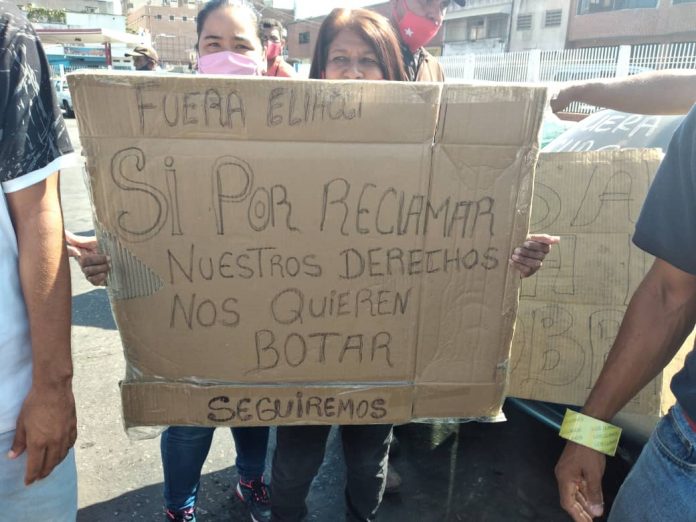 FUERA ELIHCCI
SI POR RECLAMAR
NUESTROS DERECHOS
NOS QUIEREN
BOTAR
SEGUIREMOS